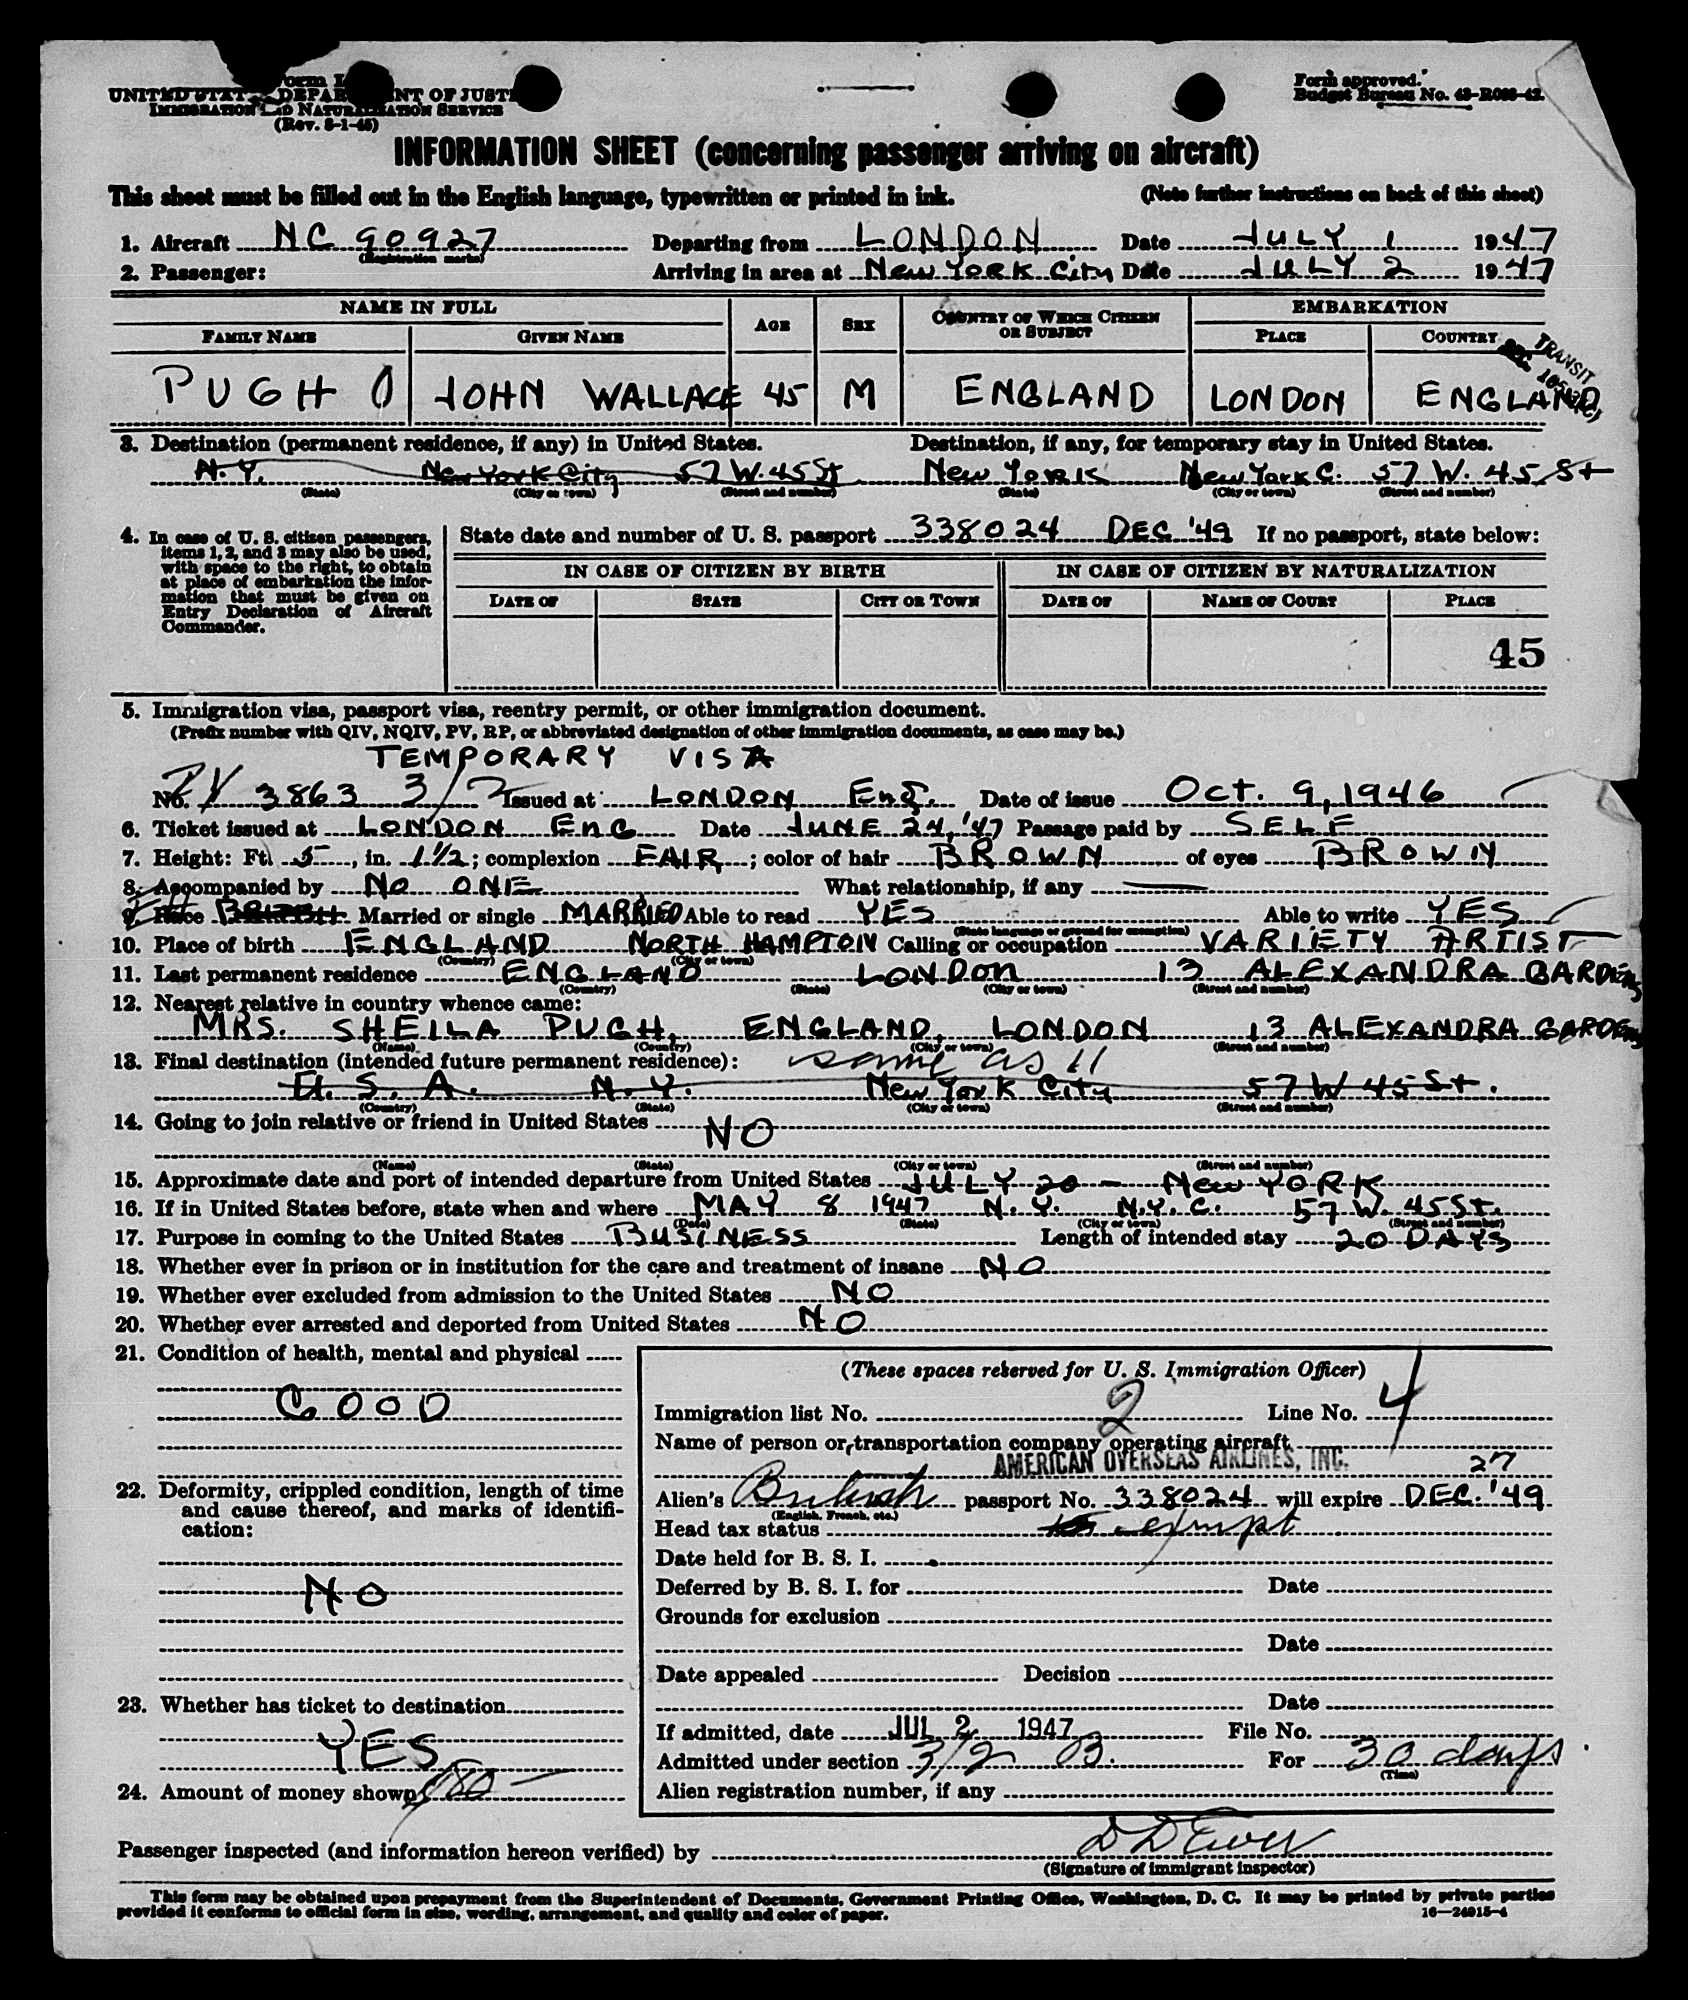 Form I
UNITED STAT DEPAR NT OF JUSTI
IMMIGRATION AND NATURALIZATION SERVICE
(Rev. 8-1-45)
Form approved.
Budget Bureau No. 43-R083-42.
INFORMATION SHEET (concerning passenger arriving on aircraft)
This sheet must be filled out in the English language, typewritten or printed in ink. (Note further instructions on back of this sheet)
1. Aircraft NC 90927 Departing from LONDON Date JULY 1 1947
(Registration marks)
2. Passenger: Arriving in area at NEW YORK CITY Date JULY 2 1947
NAME IN FULL AGE SEX COUNTRY OF WHICH CITIZEN OR SUBJECT EMBARKATION
FAMILY NAME GIVEN NAME PLACE COUNTRY
TRANSIT
PUGH JOHN WALLACE 45 M ENGLAND LONDON ENGLAND
3. Destination (permanent residence, if any) in United States. Destination, if any, for temporary stay in United States.
N.Y. New York City 57 W. 45 St New York New York C. 57 W. 45 St
(State) (City or town) (Street and number) (State) (City or town) (Street and number)
4. In case of U. S. citizen passengers, items 1, 2, and 3 may also be used, with space to the right, to obtain at place of embarkation the information that must be given on Entry Declaration of Aircraft Commander.
State date and number of U. S. passport 338024 DEC '49 If no passport, state below:
IN CASE OF CITIZEN BY BIRTH IN CASE OF CITIZEN BY NATURALIZATION
DATE OF STATE CITY OR TOWN DATE OF NAME OF COURT PLACE
45
5. Immigration visa, passport visa, reentry permit, or other immigration document.
(Prefix number with QIV, NQIV, PV, RP, or abbreviated designation of other immigration documents, as case may be.)
TEMPORARY VISA
No. PV 3863 3/2 Issued at LONDON Eng. Date of issue Oct. 9, 1946
6. Ticket issued at LONDON ENG Date JUNE 24, '47 Passage paid by SELF
7. Height: Ft. 5, in. 1 1/2; complexion FAIR; color of hair BROWN of eyes BROWN
8. Accompanied by NO ONE What relationship, if any —
9. Race BRITISH Married or single MARRIED Able to read YES Able to write YES
(State language or ground for exemption)
10. Place of birth ENGLAND NORTH HAMPTON Calling or occupation VARIETY ARTIST
(Country) (City or town)
11. Last permanent residence ENGLAND LONDON 13 ALEXANDRA GARDENS
(Country) (State) (City or town) (Street and number)
12. Nearest relative in country whence came:
MRS. SHEILA PUGH, ENGLAND, LONDON 13 ALEXANDRA GARDENS
(Name) (Country) (City or town) (Street and number)
13. Final destination (intended future permanent residence): same as 11
U.S.A. N.Y. New York City 57 W 45 St.
(Country) (State) (City or town) (Street and number)
14. Going to join relative or friend in United States NO
(Name) (State) (City or town) (Street and number)
15. Approximate date and port of intended departure from United States JULY 20 - New YORK
16. If in United States before, state when and where MAY 8 1947 N.Y. N.Y.C. 57 W. 45 St.
(Date) (State) (City or town) (Street and number)
17. Purpose in coming to the United States BUSINESS Length of intended stay 20 DAYS
18. Whether ever in prison or in institution for the care and treatment of insane NO
19. Whether ever excluded from admission to the United States NO
20. Whether ever arrested and deported from United States NO
21. Condition of health, mental and physical
GOOD
22. Deformity, crippled condition, length of time and cause thereof, and marks of identification:
NO
23. Whether has ticket to destination
YES
24. Amount of money shown 80 —
(These spaces reserved for U. S. Immigration Officer)
Immigration list No. 2 Line No. 4
Name of person or transportation company operating aircraft
AMERICAN OVERSEAS AIRLINES, INC.
27
Alien's British passport No. 338024 will expire DEC. '49
(English, French, etc.)
Head tax status exempt
Date held for B. S. I.
Deferred by B. S. I. for Date
Grounds for exclusion
Date
Date appealed Decision
Date
If admitted, date JUL 2 1947 File No.
Admitted under section 3/2 B. For 30 days.
(Time)
Alien registration number, if any
Passenger inspected (and information hereon verified) by
(Signature of immigrant inspector)
This form may be obtained upon prepayment from the Superintendent of Documents, Government Printing Office, Washington, D. C. It may be printed by private parties
provided it conforms to official form in size, wording, arrangement, and quality and color of paper.
16—24915-4